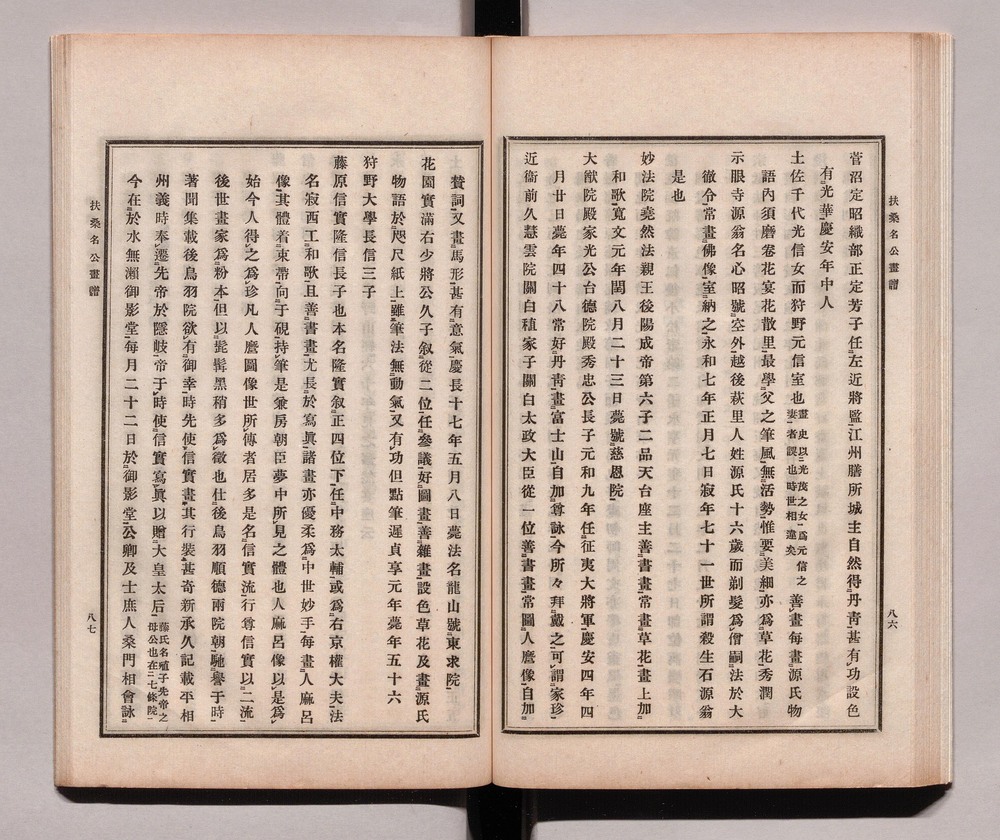 扶桑名公畫譜
八六
菅沼定昭織部正定芳子任左近將監江州膳所城主自然得丹靑甚有功設色
有光華慶安年中人
土佐千代光信女而狩野元信室也畫史以光茂之女爲元信之妻者誤也時世相違矣善畫每畫源氏物
語內須磨卷花宴花散里最學父之筆風無活勢惟要美細亦爲草花秀潤
示眼寺源翁名心昭號空外越後萩里人姓源氏十六歲而剃髮爲僧嗣法於大
徹令常畫佛像室納之永和七年正月七日寂年七十一世所謂殺生石源翁
是也
妙法院堯然法親王後陽成帝第六子二品天台座主善書畫常畫草花畫上加
和歌寬文元年閏八月二十三日薨號慈恩院
大猷院殿家光公台德院殿秀忠公長子元和九年任征夷大將軍慶安四年四
月廿日薨年四十八常好丹靑畫富士山自加尊詠今所々拜戴之可謂家珍
近衞前久慧雲院關白稙家子關白太政大臣從一位善書畫常圖人麿像自加
贊詞又畫馬形甚有意氣慶長十七年五月八日薨法名龍山號東求院
花園實滿右少將公久子敘從二位任參議好圖畫善雜畫設色草花及畫源氏
物語於咫尺紙上雖筆法無動氣又有功但點筆遲貞享元年薨年五十六
狩野大學長信三子
藤原信實隆信長子也本名隆實敘正四位下任中務太輔或爲右京權大夫法
名寂西工和歌且善書畫尤長於寫眞諸畫亦優柔爲中世妙手每畫人麻呂
像其體着束帶向于硯持筆是兼房朝臣夢中所見之體也人麻呂像以是爲
始今人得之爲珍凡人麿圖像世所傳者居多是名信實流行尊信實以二流
後世畫家爲粉本但以髭髯黑稍多爲徵也仕後鳥羽順德兩院朝馳譽于時
著聞集載後鳥羽院欲有御幸時先使信實畫其行裝甚奇新承久記載平相
州義時奉遷先帝於隱岐帝于時使信實寫眞以贈大皇太后藤氏名殖子先帝之母公也在七條院
今在於水無瀨御影堂每月二十二日於御影堂公卿及士庶人桑門相會詠
扶桑名公畫譜
八七